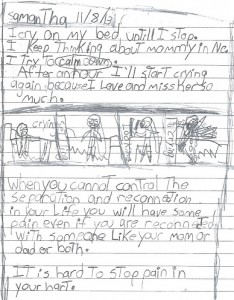 samantha 11/8/21
I cry on my bed until I stop.
I keep thinking about mommy in Ne.
I Try to calm down.
After an hour I'll start crying
again because I Love and miss her so
much.
crying
When you cannot control The
separation and reconnection
in your Life you will have some
pain even if you are reconnected
with someone Like your mom or
dad or both.
IT is hard to stop pain in
your hart.